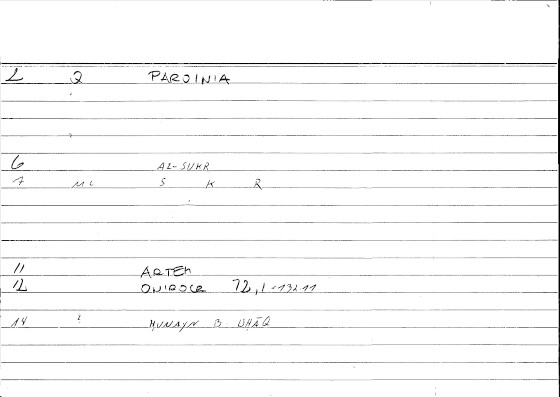 2 PAROINIA
6 AL-SUKR
7 MC S K R
11 ARTEM
12 ONIROCR 72,1-132.11
14 ? HUNAYN B. ISHĀQ